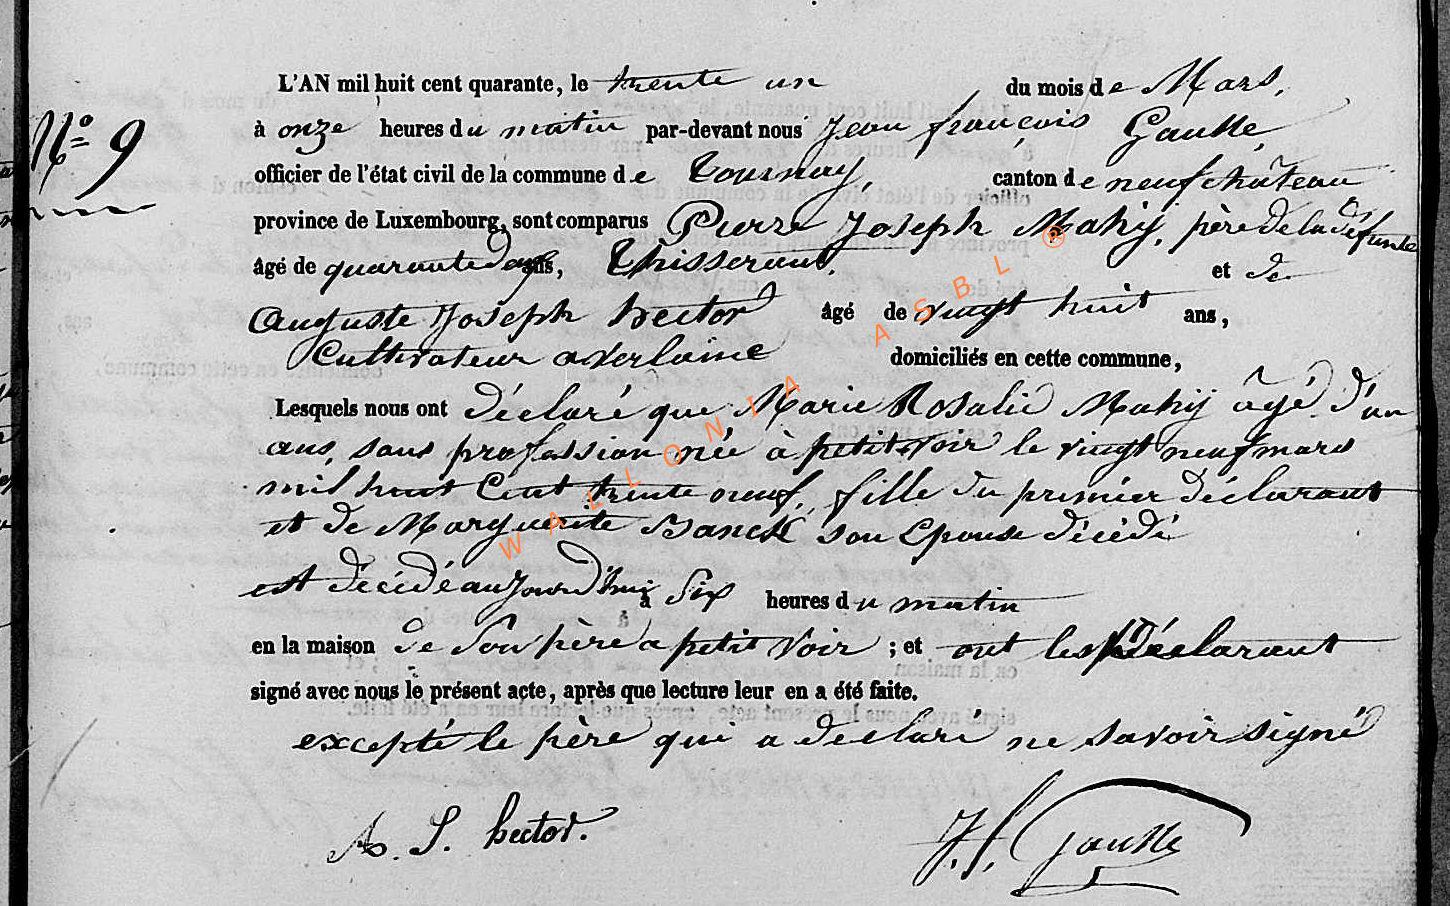 L'AN mil huit cent quarante, le trente un du mois de Mars,
N° 9
à onze heures du matin par-devant nous Jean françois Gausse
officier de l'état civil de la commune de Tournay, canton de neufchâteau
province de Luxembourg, sont comparus Pierre Joseph Mahij, père de la défunte
âgé de quarante ans, Thisserant, et de
Auguste Joseph hector âgé de vingt huit ans,
Cultivateur a Verlaine domiciliés en cette commune,
Lesquels nous ont déclaré que Marie Rosalie Mahij âgé d'un
ans, sans profession née à petitvoir le vingt neuf mars
mil huit Cent trente neuf, fille du premier déclarant
et de Marguerite Banck son Epouse décédé
est décédé aujourd'hui à Six heures du matin
en la maison de Son père a petit Voir ; et ont les Déclarant
signé avec nous le présent acte, après que lecture leur en a été faite.
excepté le père qui a declaré ne savoir signé
A. J. hector. J. f. Gausse
WALLONIA ASBL ®